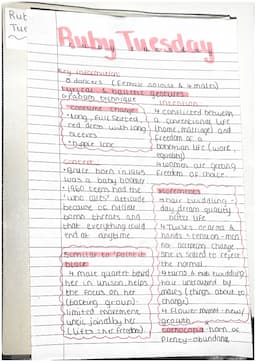 Rub
Tue
Ruby Tuesday
Key information:
8 dancers (female soloist & 4 males)
Lyrical & balletic gestures
Graham technique
Costume change
• Long, full skirted
red dress with long
sleeves
• Purple tone
Context:
• Bruce born in 1945
was a baby boomer
• 1960 teens had the
'who cares' attitude
because of nuclear
bomb threats and
that everything could
end at anytime
Similar to 'paint it
black'
4 male quartet bend
her in unison helps
the focus on her
(backing group)
limited movement
until joined by her
(Lifts the freedom)
Intention:
conflicted between
a conventional life
(home, marriage) and
freedom of a
bohemian life (work,
equality)
women are getting
freedom of choice.
Movements
hair twiddling -
day dream quality
outer life
Twists onto &
hands & tension - men
not accepting change
she is scared to reject
the normal.
turns & hub twiddling
hair untouched by
males (things about to
change)
Flower motif - new
growth
cornucopia horn of
plenty - abundance